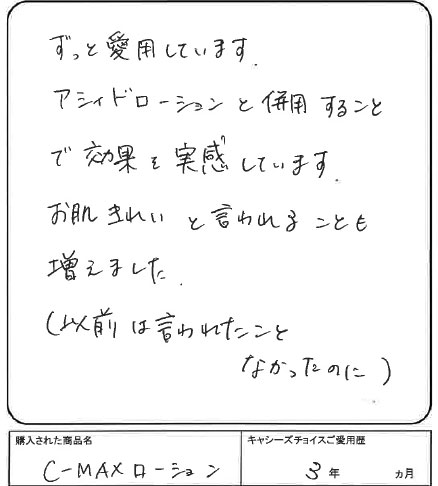 ずっと愛用しています.
アシィドローションと併用すること
で効果を実感しています.
お肌きれいと言われることも
増えました.
(以前は言われたこと
なかったのに)
購入された商品名
キャシーズチョイスご愛用歴
C-MAXローション
3年 ヵ月